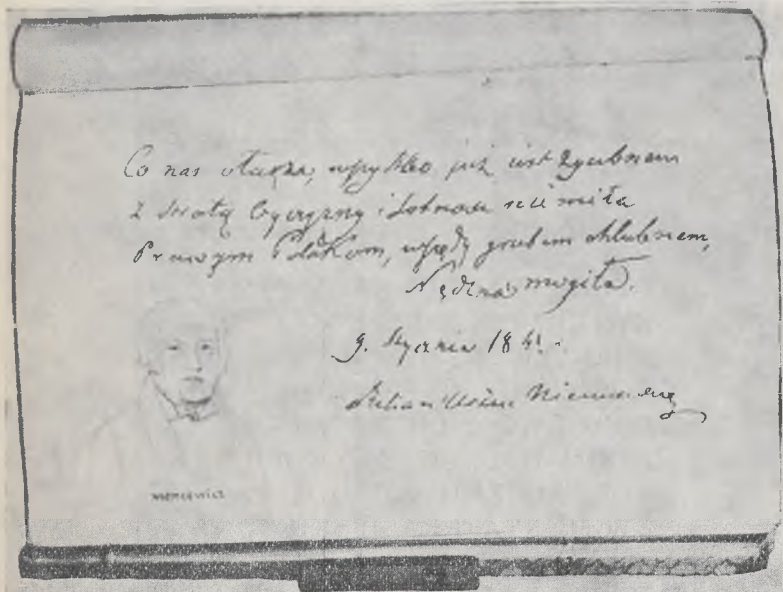 Co nas otacza, wszystko już jest zgubnem
z stratą Oyczyzny i
Prawym Polakom, wszędy grobem chlubnem,
Nędzna mogiła.
9. Stycznia 1841.
Julian Ursin Niemcewicz
NIEMCEWICZ